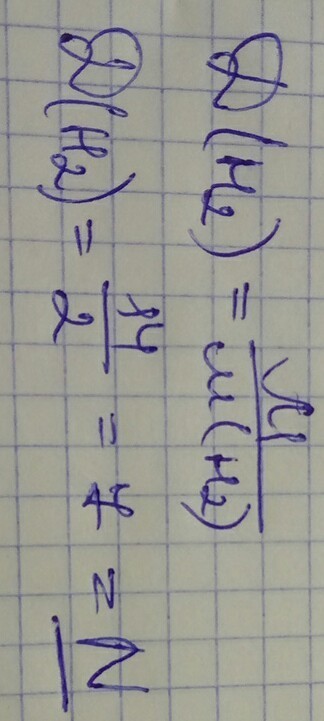 D(H₂) = M / M(H₂)
D(H₂) = 14 / 2 = 7 = N